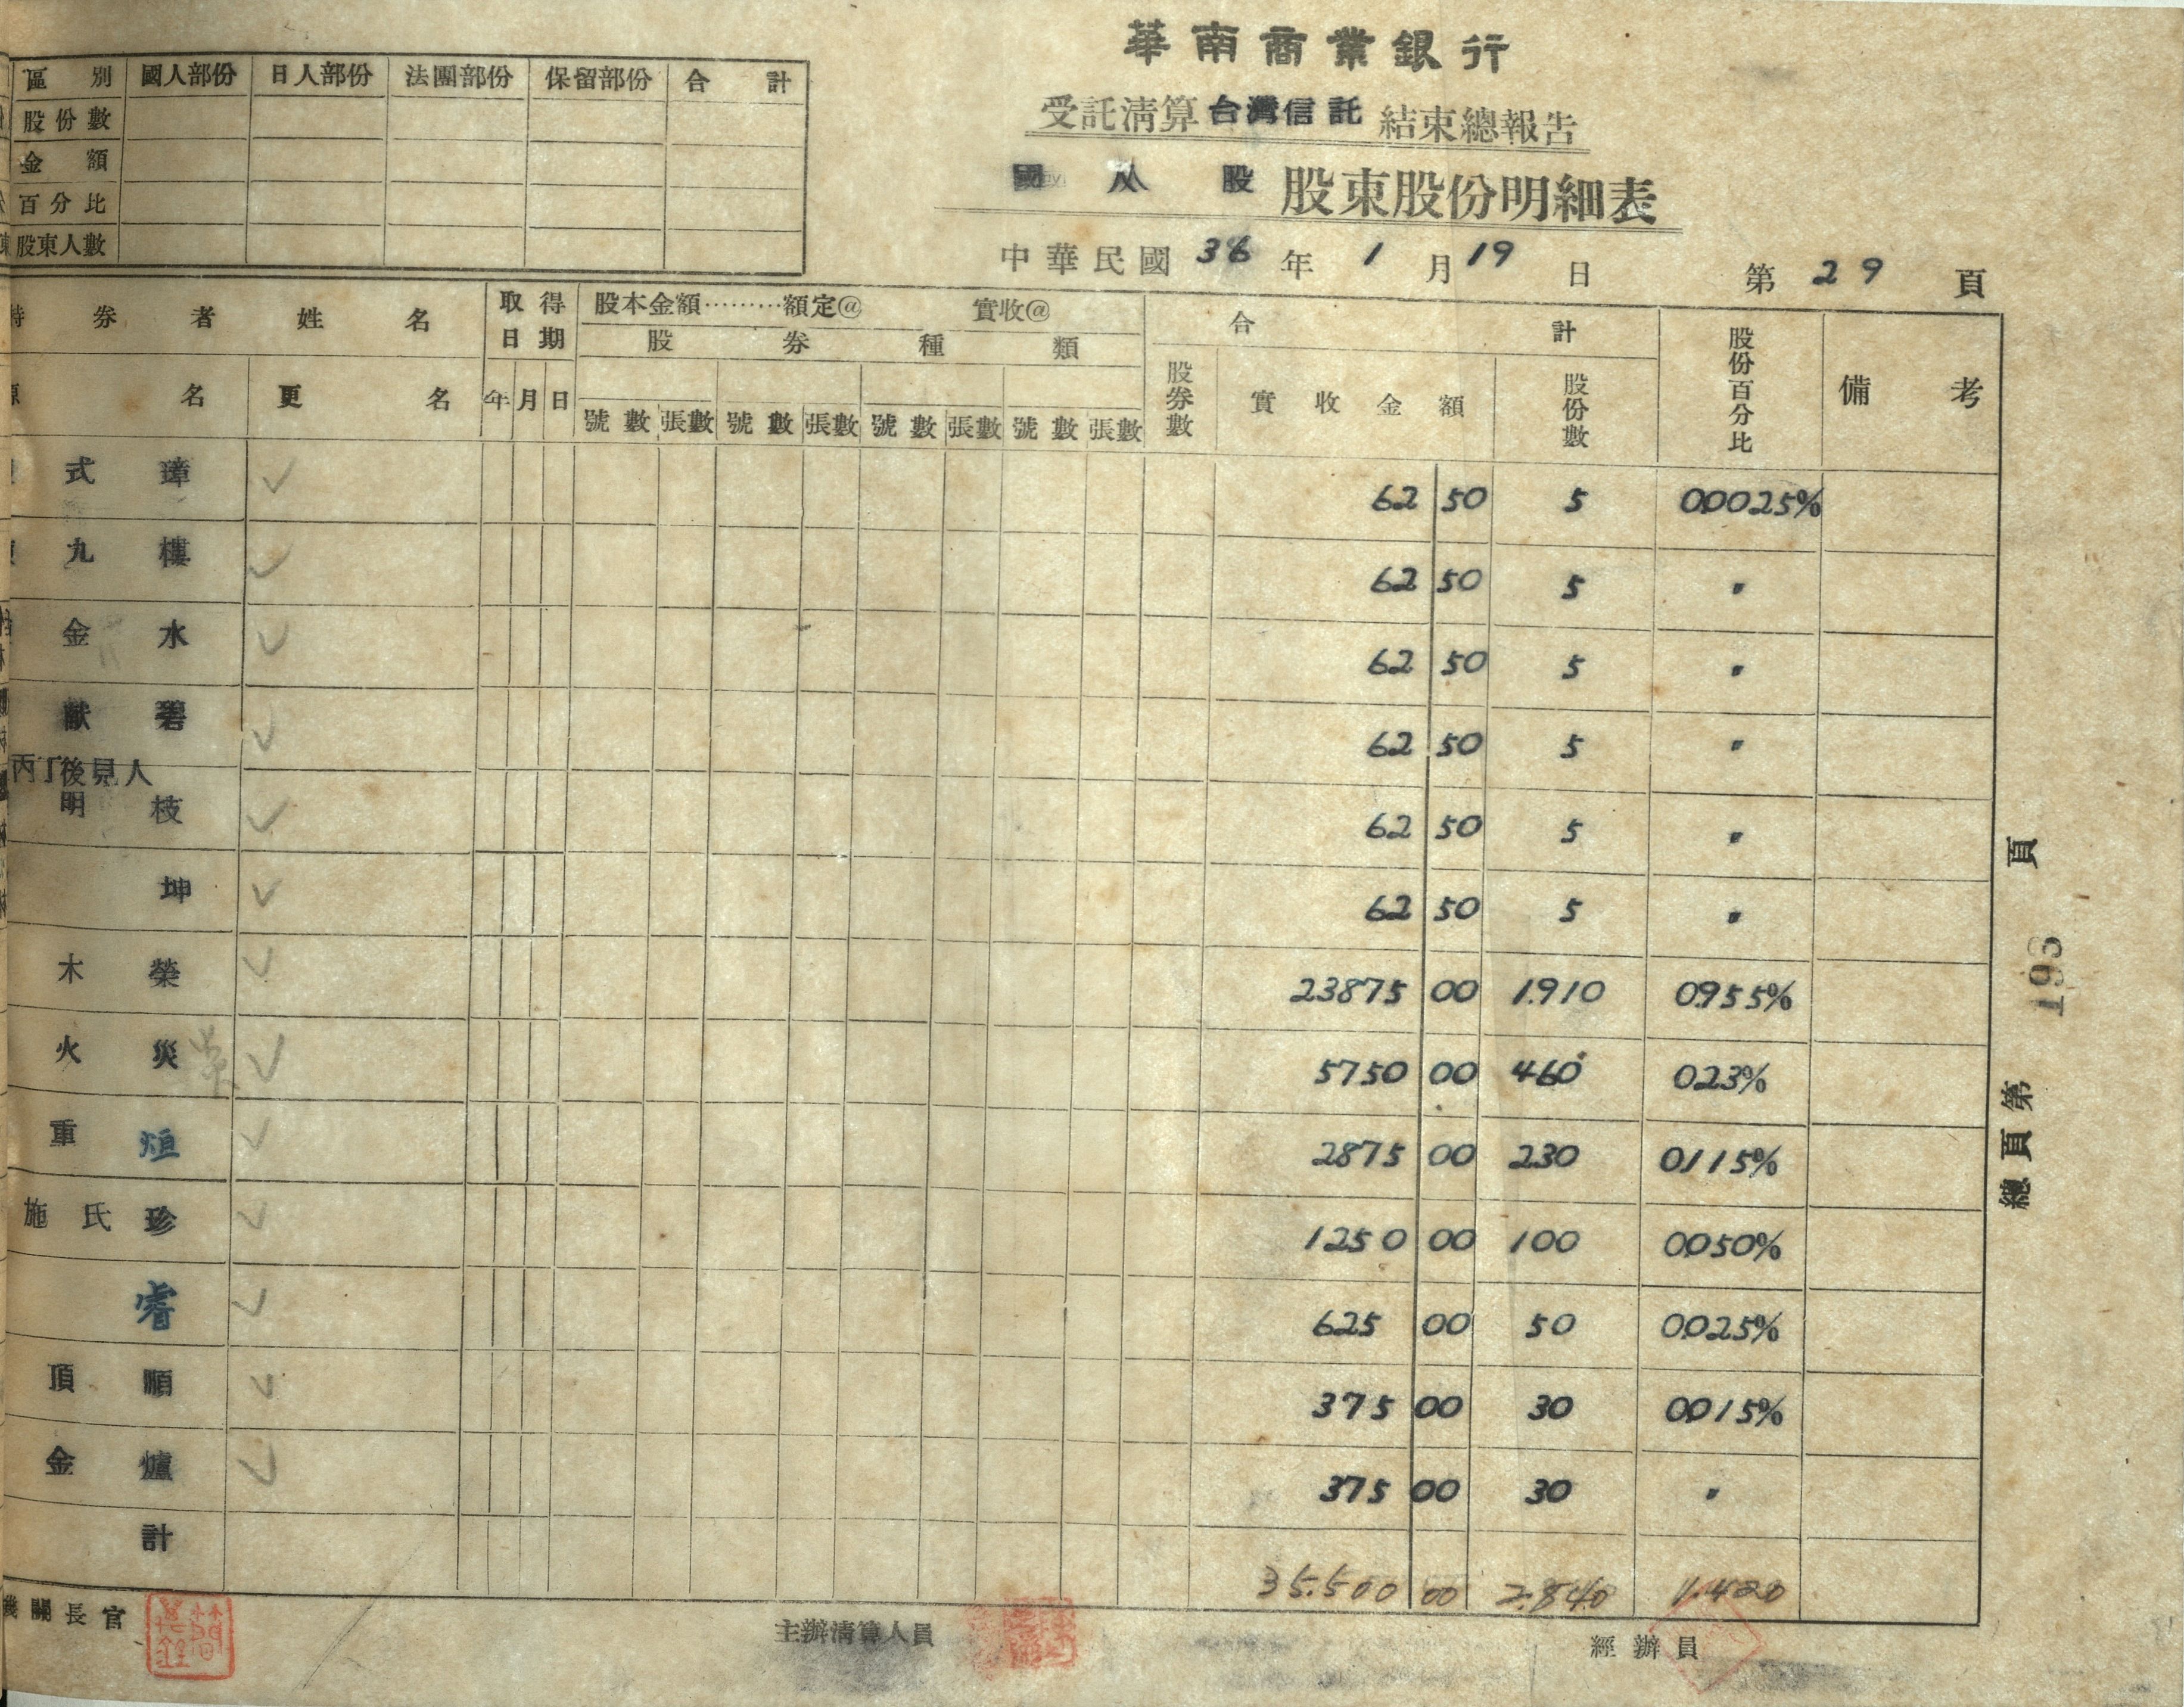 華南商業銀行
受託清算台灣信託結束總報告
國人股股東股份明細表
中華民國 36 年 1 月 19 日 第 29 頁
區別 國人部份 日人部份 法團部份 保留部份 合計
股份數
金額
百分比
股東人數
券者姓名 取得日期 股本金額………額定@ 實收@ 合計 股份百分比 備考
股券種類
名 更名 年 月 日 號數 張數 號數 張數 號數 張數 號數 張數 股券數 實收金額 股份數
式璋 62 50 5 0.0025%
九樓 62 50 5 〃
金水 62 50 5 〃
獻碧 62 50 5 〃
丙丁後見人
明枝 62 50 5 〃
坤 62 50 5 〃
木榮 23875 00 1.910 0.955%
火災 5750 00 460 0.23%
重烜 2875 00 230 0.115%
施氏珍 1250 00 100 0.050%
睿 625 00 50 0.025%
頂順 375 00 30 0.015%
金爐 375 00 30 〃
計 35.500 00 2.840 1.420
機關長官 主辦清算人員 經辦員
總頁第 193 頁